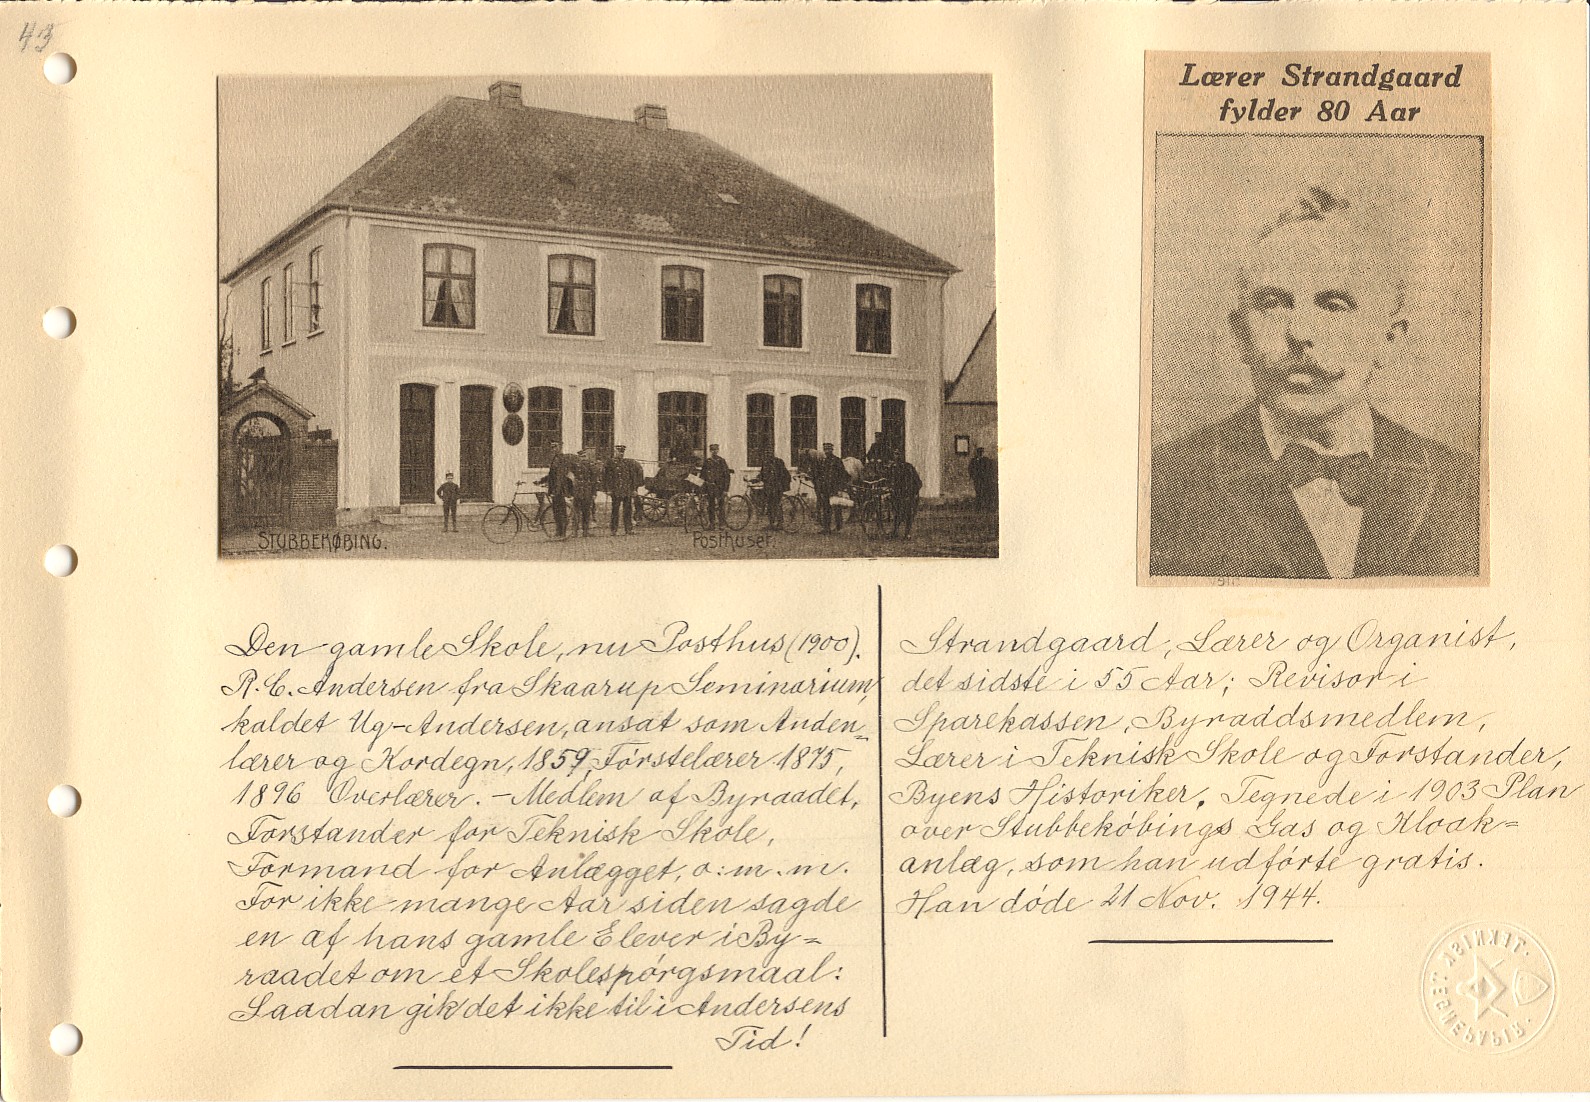 43
Lærer Strandgaard
fylder 80 Aar
STUBBEKØBING.
Posthuset.
Den gamle Skole, nu Posthus (1900).
R. C. Andersen fra Skaarup Seminarium,
kaldet Ug-Andersen, ansat som Anden=
lærer og Kordegn, 1859, Førstelærer 1875,
1896 Overlærer. - Medlem af Byraadet,
Forstander for Teknisk Skole,
Formand for Anlægget, o:m.m.
For ikke mange Aar siden sagde
en af hans gamle Elever i By=
raadet om et Skolespørgsmaal:
Saadan gik det ikke til i Andersens
Tid!
Strandgaard, Lærer og Organist,
det sidste i 55 Aar; Revisor i
Sparekassen, Byraadsmedlem,
Lærer i Teknisk Skole og Forstander,
Byens Historiker. Tegnede i 1903 Plan
over Stubbekøbings Gas og Kloak=
anlæg, som han udførte gratis.
Han døde 21 Nov. 1944.
TEKNISK
TEGNEPAPIR